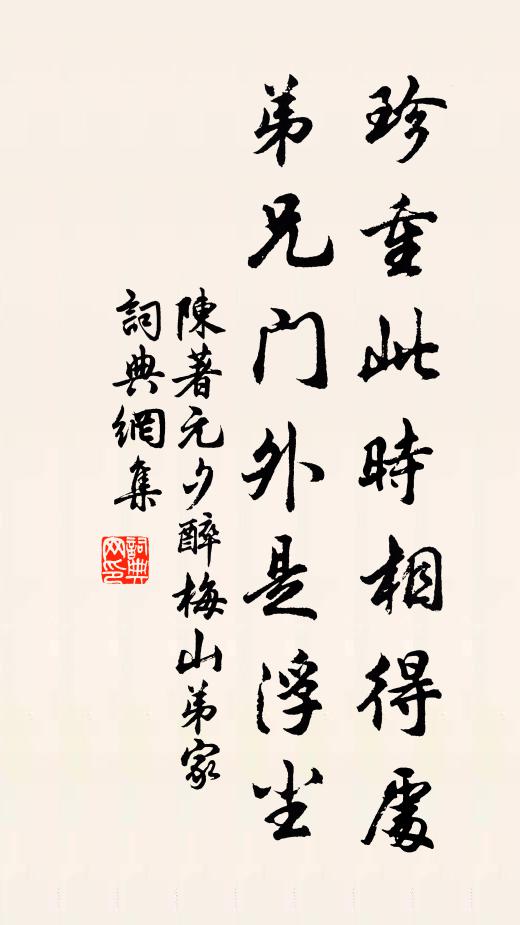 珍重此時相得處
弟兄門外是浮尘
陳著元夕醉梅山弟家
詞典網集
詞典网印